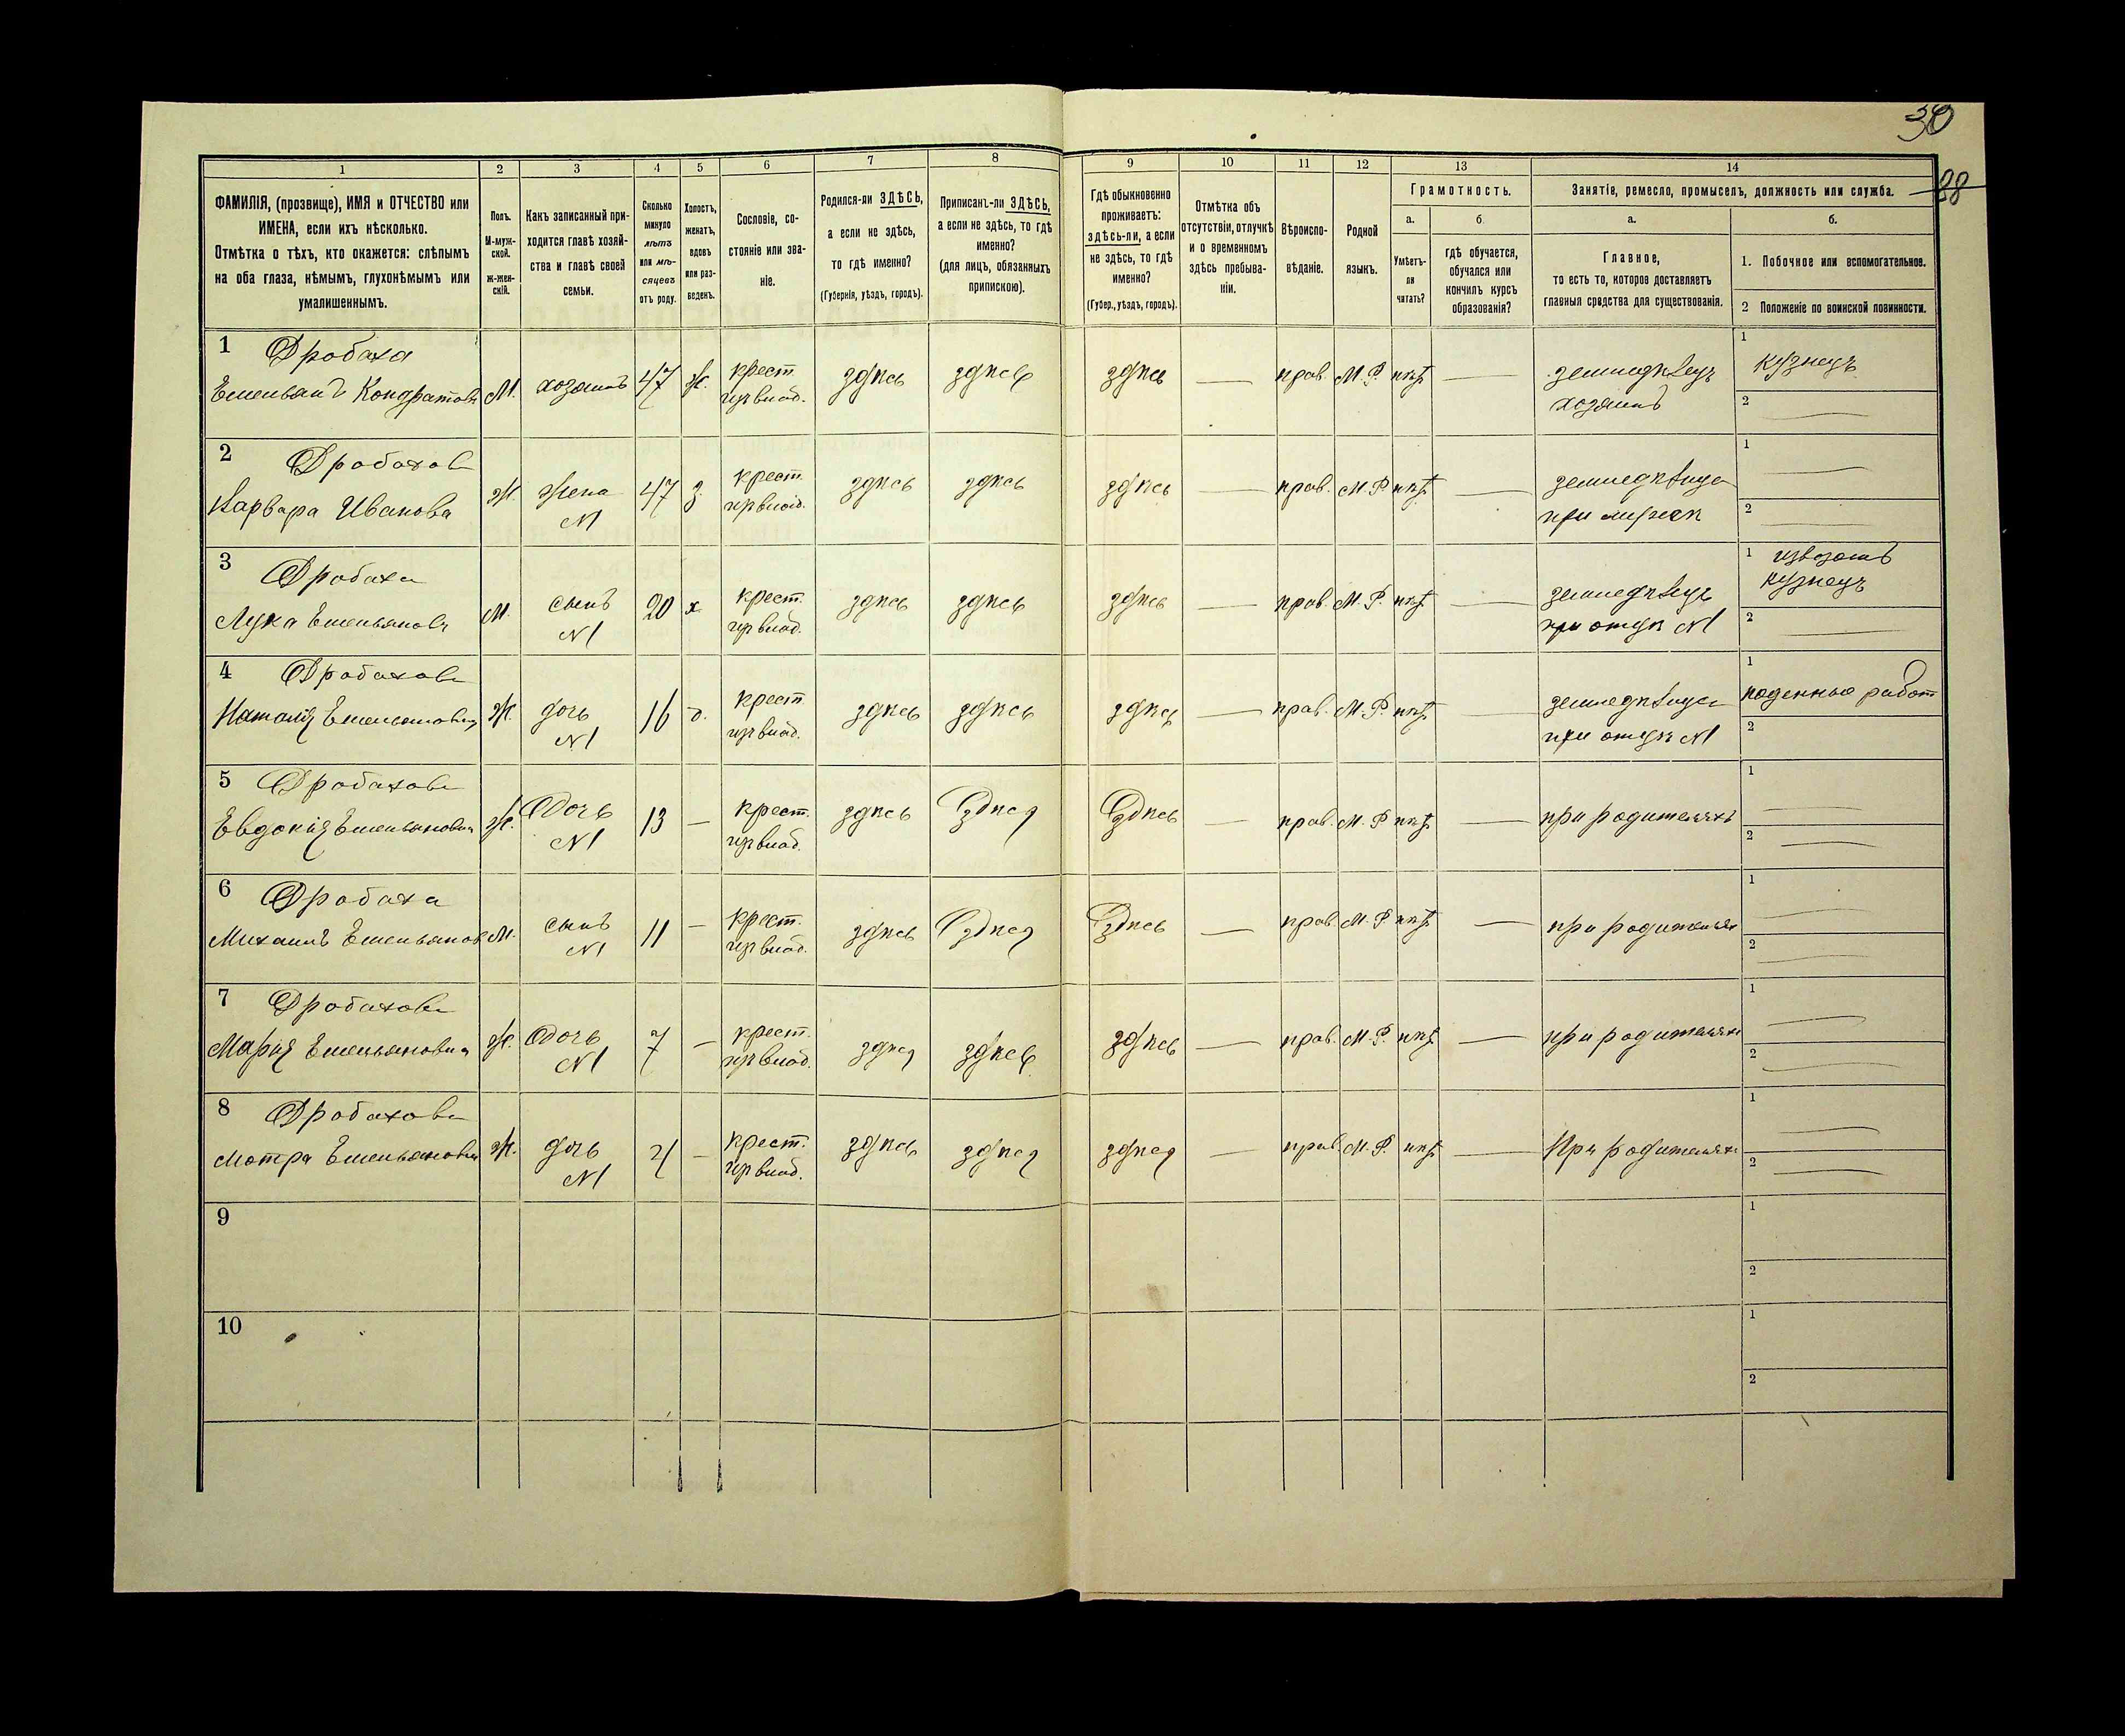 30
28
1 2 3 4 5 6 7 8 9 10 11 12 13 14
ФАМИЛІЯ, (прозвище), ИМЯ и ОТЧЕСТВО или
ИМЕНА, если ихъ нѣсколько.
Отмѣтка о тѣхъ, кто окажется: слѣпымъ
на оба глаза, нѣмымъ, глухонѣмымъ или
умалишеннымъ.
Полъ.
М-муж-
ской.
ж-жен-
скій.
Какъ записанный при-
ходится главѣ хозяй-
ства и главѣ своей
семьи.
Сколько
минуло
лѣтъ
или мѣ-
сяцевъ
отъ роду.
Холостъ,
женатъ,
вдовъ
или раз-
веденъ.
Сословіе, со-
стояніе или зва-
ніе.
Родился-ли ЗДѢСЬ,
а если не здѣсь,
то гдѣ именно?
(Губернія, уѣздъ, городъ).
Приписанъ-ли ЗДѢСЬ,
а если не здѣсь, то гдѣ
именно?
(для лицъ, обязанныхъ
припискою).
Гдѣ обыкновенно
проживаетъ:
здѣсь-ли, а если
не здѣсь, то гдѣ
именно?
(Губер., уѣздъ, городъ).
Отмѣтка объ
отсутствіи, отлучкѣ
и о временномъ
здѣсь пребыва-
ніи.
Вѣроиспо-
вѣданіе.
Родной
языкъ.
Грамотность.
а.
Умѣетъ-
ли
читать?
б.
гдѣ обучается,
обучался или
кончилъ курсъ
образованія?
Занятіе, ремесло, промыселъ, должность или служба.
а.
Главное,
то есть то, которое доставляетъ
главныя средства для существованія.
б.
1. Побочное или вспомогательное.
2 Положеніе по воинской повинности.
1 Дробаха
Емельянъ Кондратовъ М. хозяинъ 47 ж. крест.
изъ влад. здѣсь здѣсь здѣсь — прав. М.Р. нѣт — земледѣлец
хозяинъ 1 кузнецъ
2 —
2 Дробахова
Варвара Иванова Ж. жена
N1 47 з. крест.
изъ влад. здѣсь здѣсь здѣсь — прав. М.Р. нѣт — земледѣлица
при мужѣ 1 —
2 —
3 Дробаха
Лука Емельяновъ М. сынъ
N1 20 х крест.
изъ влад. здѣсь здѣсь здѣсь — прав. М.Р. нѣт — земледѣлец
при отцѣ N1 1
кузнецъ
2 —
4 Дробахова
Наталія Емельяновна Ж. дочь
N1 16 д. крест.
изъ влад. здѣсь здѣсь здѣсь — прав. М.Р. нѣт — земледѣлица
при отцѣ N1 1
поденныя работ
2
5 Дробахова
Евдокія Емельяновна Ж. Дочь
N1 13 — крест.
изъ влад. здѣсь Здѣсь Здѣсь — прав. М.Р. нѣт — при родителяхъ 1 —
2 —
6 Дробаха
Михаилъ Емельянов М. сынъ
N1 11 — крест.
изъ влад. здѣсь Здѣсь Здѣсь — прав. М.Р. нѣт — при родителях 1 —
2 —
7 Дробахова
Марія Емельяновна Ж. Дочь
N1 7 — крест.
изъ влад. здѣсь здѣсь здѣсь — прав. М.Р. нѣт — при родителяхъ 1 —
2 —
8 Дробахова
Мотра Емельяновна Ж. дочь
N1 — крест.
изъ влад. здѣсь здѣсь здѣсь — прав. М.Р. нѣт — При родителяхъ 1 —
2 —
9 1
2
10 1
2